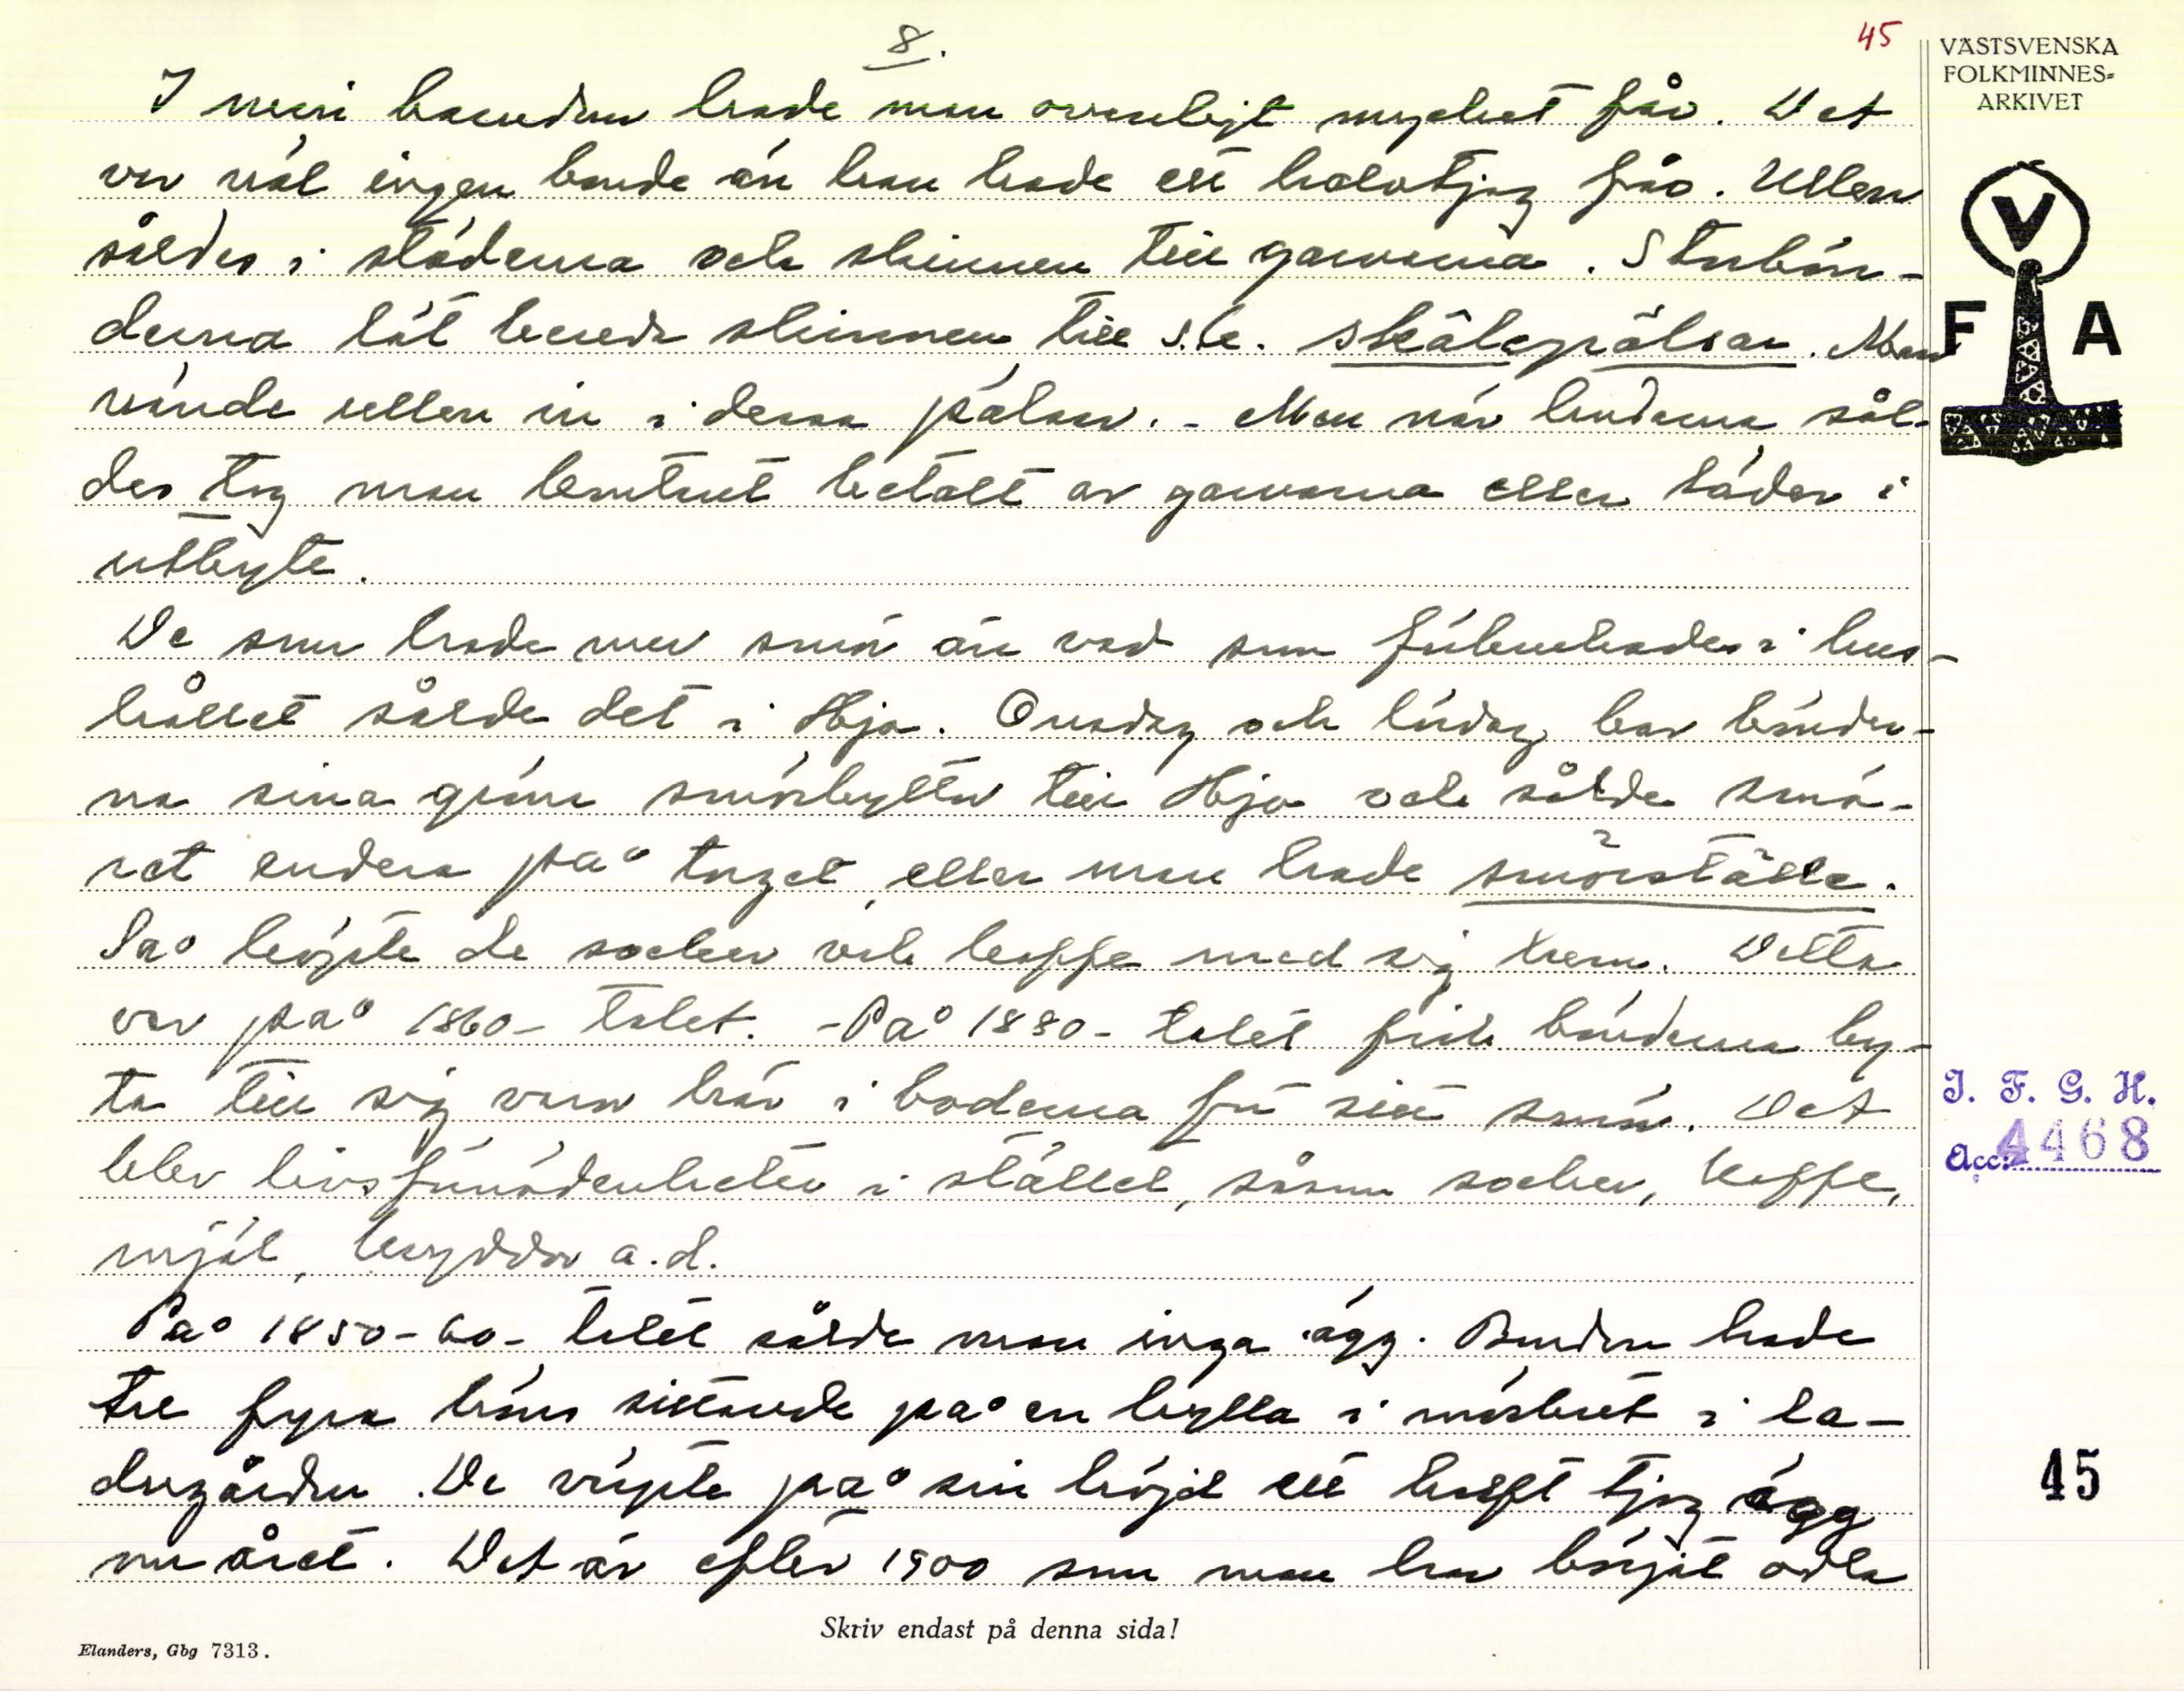 8.
45
I min barndom hade man ovanligt mycket får. Det
var väl ingen bonde än han hade ett halvtjog får. Ullen
såldes i städerna och skinnen till garvarna. Storbön-
derna lät bereda skinnen till s.k. skälapälsar. Man
vände ullen in i dessa pälsar. - Men när hudarna sål-
des tog man kontant betalt av garvarna eller läder i
utbyte.
De som hade mer smör än vad som förbrukades i hus-
hållet sålde det i Hjo. Onsdag och lördag bar bönder-
na sina gröna smörbyttor till Hjo och sålde smö-
ret endera på torget, eller man hade smörställe.
Så köpte de socker och kaffe med sig hem. Detta
var på 1860-talet. - På 1880-talet fick bönderna by-
ta till sig varor här i bodarna för sitt smör. Det
blev livsförnödenheter i stället, såsom socker, kaffe,
mjöl, kryddor a.d.
På 1850-60-talet sålde man inga ägg. Bonden hade
tre fyra höns sittande på en hylla i mörkret i la-
dugården. De värpte på sin höjd ett halft tjog ägg
om året. Det är efter 1900 som man har börjat odla
VÄSTSVENSKA
FOLKMINNES-
ARKIVET
V
F A
I. F. G. H.
Acc. 4468
45
Skriv endast på denna sida!
Elanders, Gbg 7313.